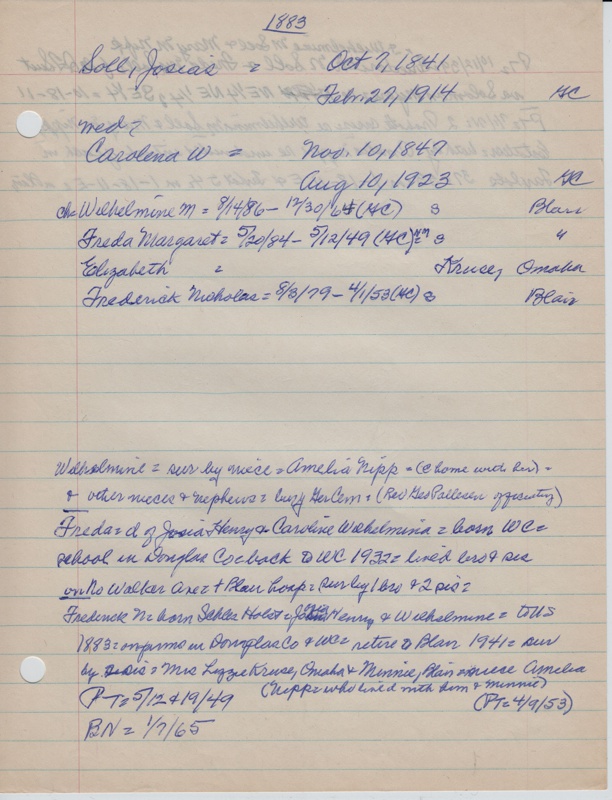 1883
Soll, Josias = Oct 7, 1841
Feb. 27, 1914 GC
med =
Carolena W = Nov. 10, 1847
Aug 10, 1923 GC
ch = Wilhelmine M = 8/14/86 - 12/30/64 (GC) s Blair
Freda Margaret = 5/20/84 - 5/12/49 (GC) = s "
Elizabeth = Kruse, Omaha
Frederick Nicholas = 8/3/79 - 4/1/53 (GC) s Blair
Wilhelmine = sur by niece = Amelia Nipp = (@ home with her) =
& other nieces & nephews = bury Ger Cem = (Rev Geo Pallesen officiating)
Freda = d of Josia Henry & Caroline Wilhelmina = born WC =
school in Douglas Co = back to WC 1932 = lived bro & sis
on No Walker Ave = + Blair hosp = sur by 1 bro & 2 sis =
Frederick N = born Schles Holst = Henry & Wilhelmine = to US
1883 = on farms in Douglas Co & WC = retire to Blair 1941 = sur
by sis = Mrs Lizzie Kruse, Omaha & Minnie, Blair = niece Amelia
(Nipp = who lived with him & Minnie)
(PT = 5/12 & 19/49 (PT = 4/9/53)
BN = 1/7/65